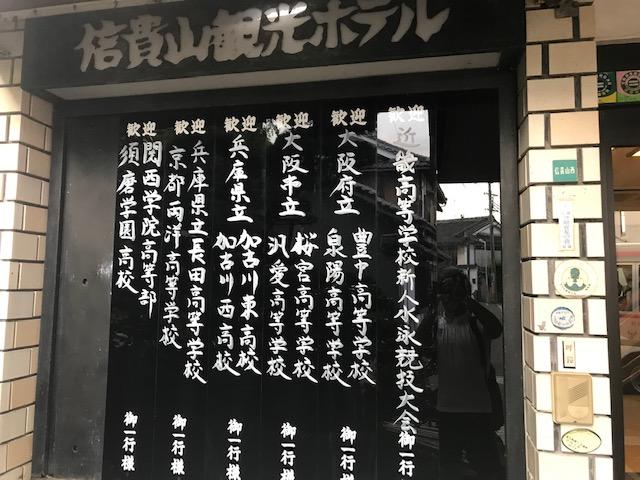 信貴山観光ホテル
歓迎
近畿高等学校新人水泳競技大会御一行
歓迎
大阪府立
豊中高等学校
泉陽高等学校
御一行様
歓迎
大阪市立
桜宮高等学校
汎愛高等学校
御一行様
歓迎
兵庫県立
加古川東高校
加古川西高校
御一行様
歓迎
兵庫県立長田高等学校
京都両洋高等学校
御一行様
歓迎
関西学院高等部
須磨学園高校
御一行様
信貴山西